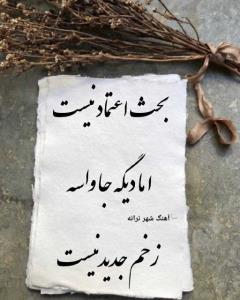 بحث اعتماد نیست
اما دیگه جا واسه
آهنگ شهر ترانه
زخم جدید نیست